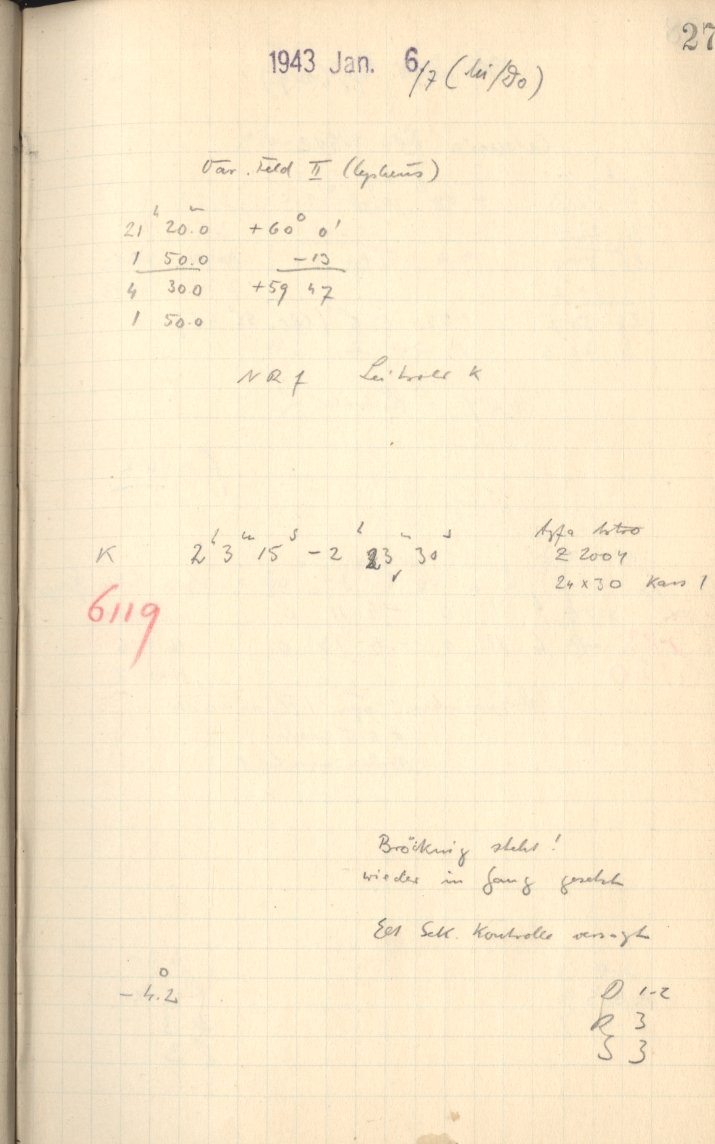 27
1943 Jan. 6/7 (Mi/Do)
Var. Feld II (Cepheus)
21 h 20.0 m +60° 0'
1 50.0 -13
4 30.0 +59 47
1 50.0
NRf Leitrohr K
K 2h 3m 15s - 2h 23m 30s
Agfa Astro
Z 2004
24 x 30 Kass 1
6119
Bröcking steht!
wieder in Gang gesetzt
Sek. Kontrolle versagt
-4.°2
D 1-2
R 3
S 3